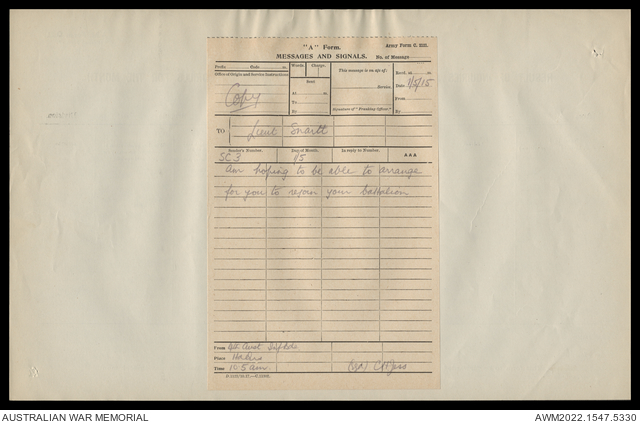 "A" Form.
Army Form C. 2121.
MESSAGES AND SIGNALS.
No. of Message
Prefix Code m.
Words Charge
This message is on a/c of:
Recd. at m.
Office of Origin and Service Instructions
Sent
Service.
Date 1/5/15
Copy
At m.
From
To
By
(Signature of "Franking Officer.")
By
TO Lieut Snartt
Sender's Number.
Day of Month.
In reply to Number.
AAA
SC 3
1/5
Am hoping to be able to arrange
for you to rejoin your battalion
From 4th Aust Inf Bde
Place
Time 10.5 am.
AUSTRALIAN WAR MEMORIAL
AWM2022.1547.5330